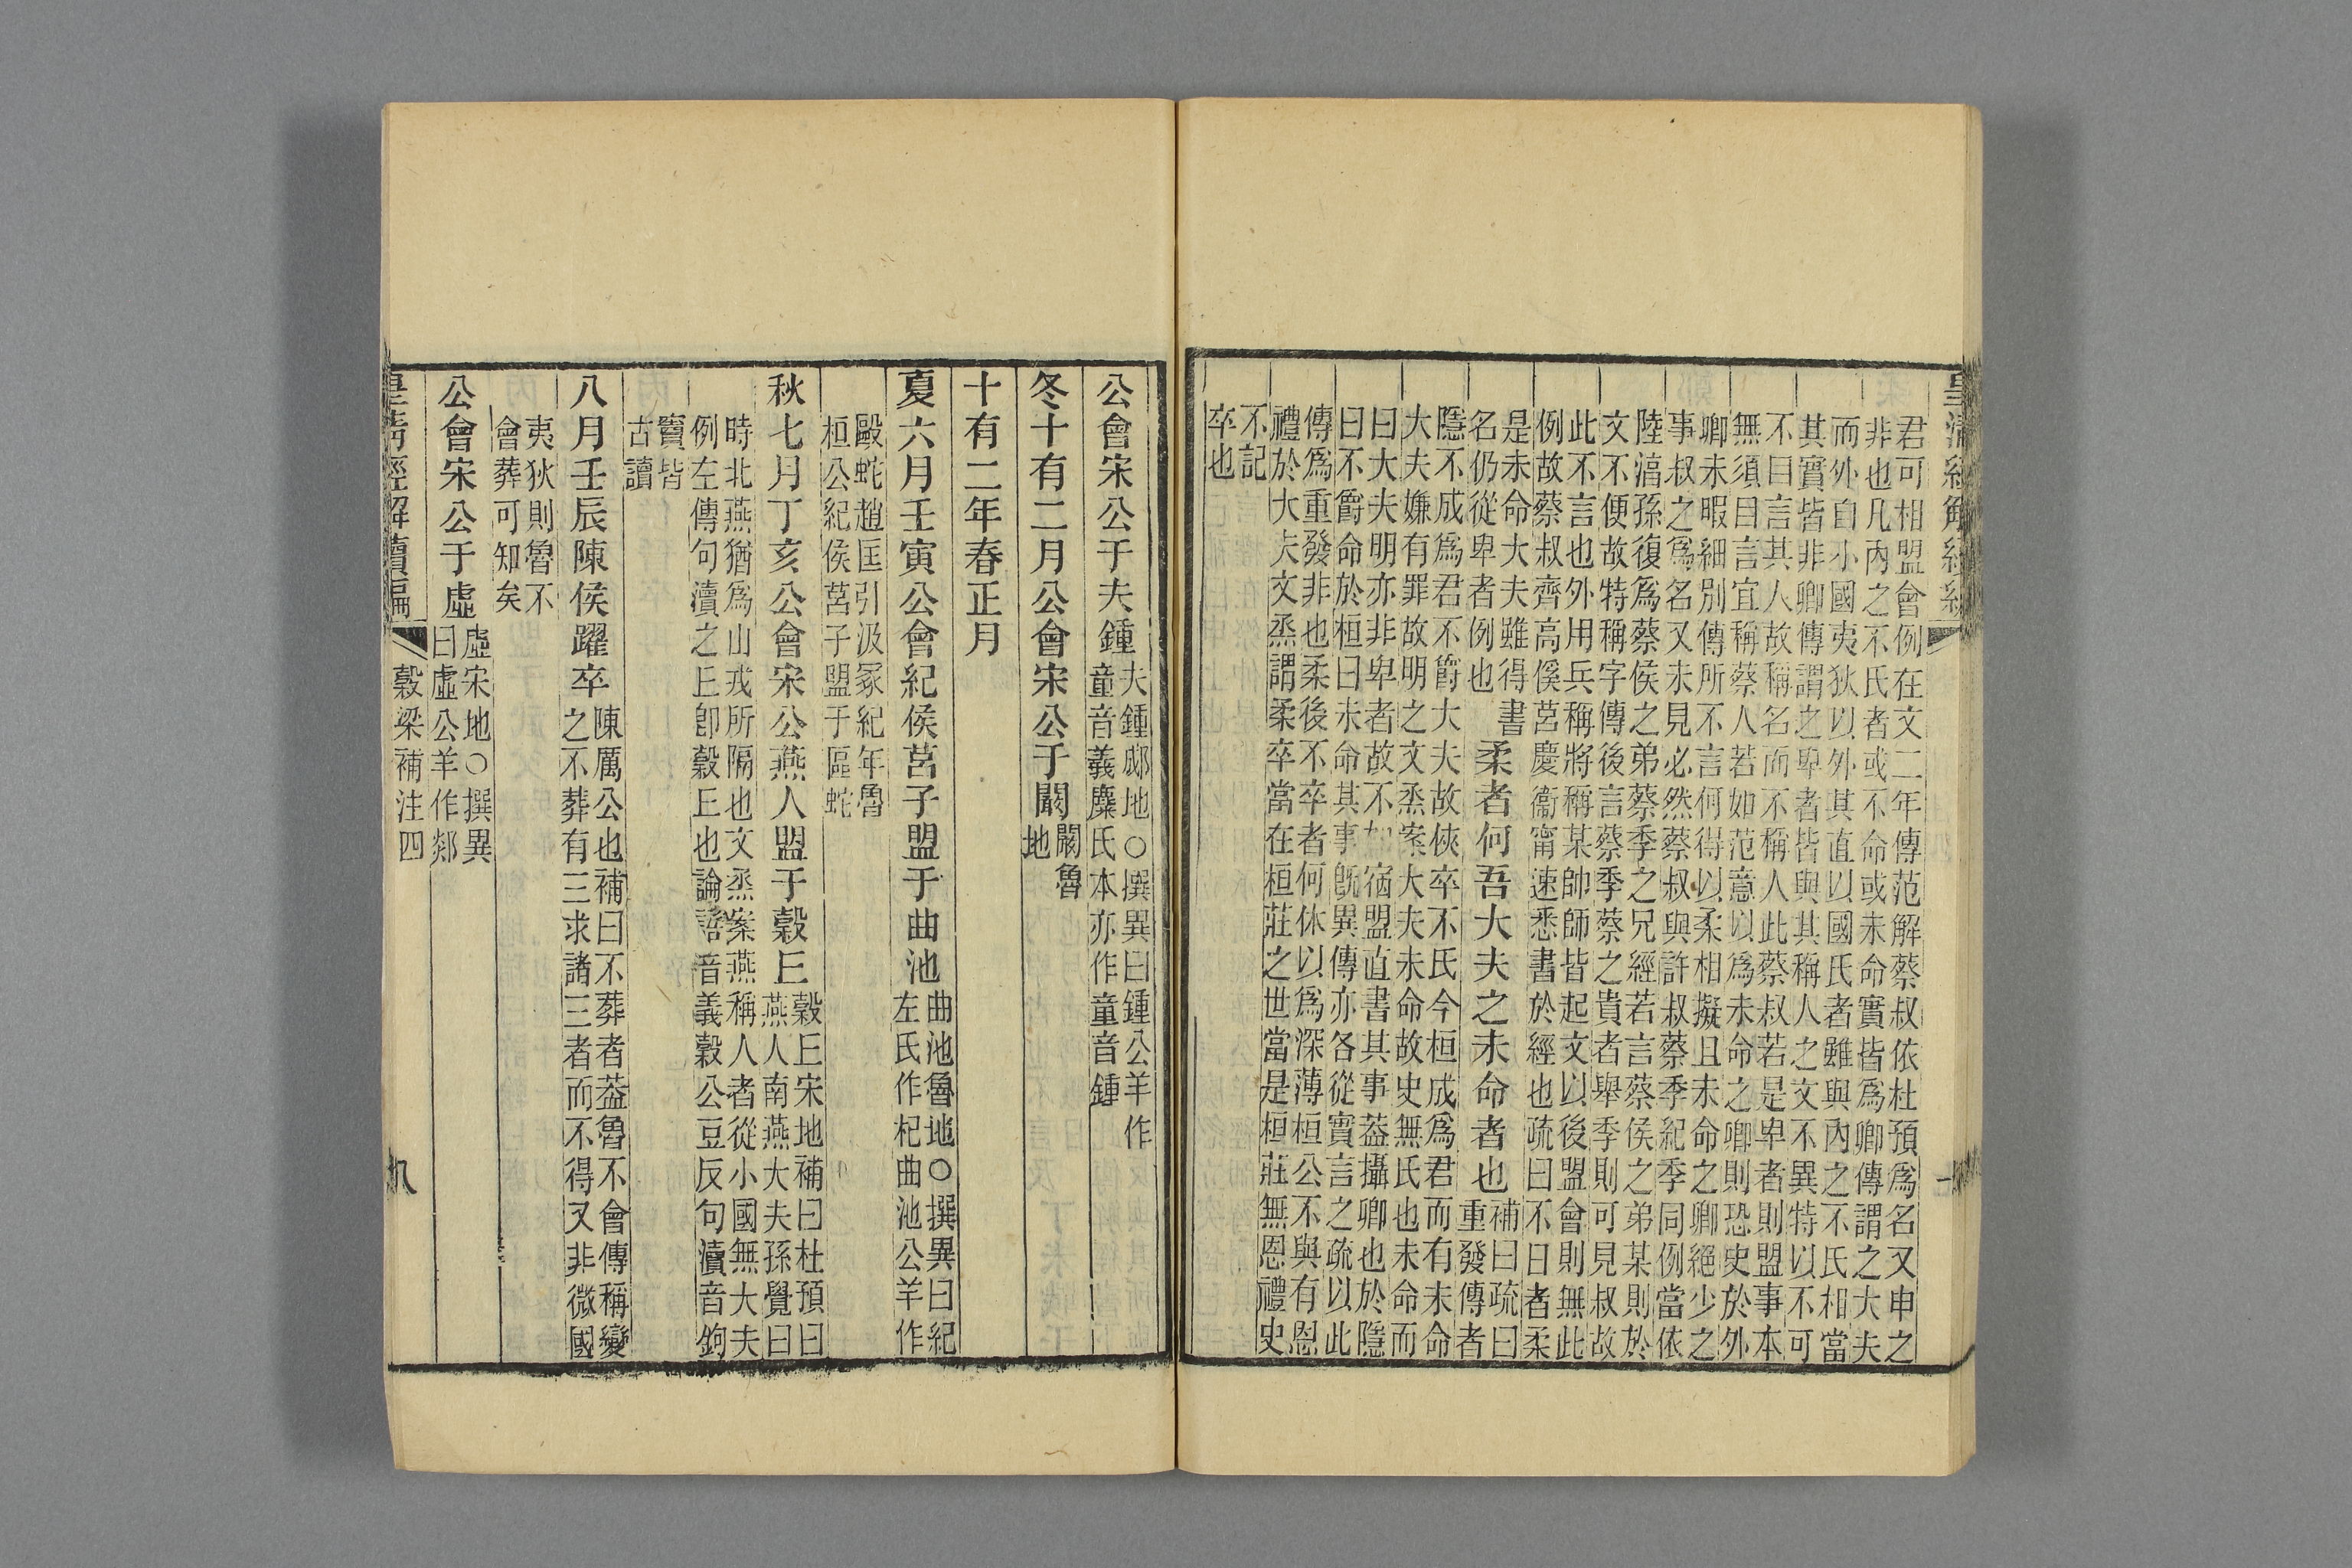 皇清經解續編
君可相盟會例在文二年傳范解蔡叔依杜預爲名又申之
非也凡內之不氏者或不命或未命實皆爲卿傳謂之大夫
而外自小國夷狄以外其直以國氏者雖與內之不氏相當
其實皆非卿傳謂之卑者皆與其稱人之文不異特以不可
不曰言其人故稱名而不稱人此蔡叔若是卑者則盟事本
無須目言宜稱蔡人若如范意以爲未命之卿則恐史於外
卿未暇細別傳所不言何得以柔相擬且未命之卿絕少之
事叔之爲名又未見必然蔡叔與許叔蔡季紀季同例當依
陸淳孫復爲蔡侯之弟蔡季之兄經若言蔡侯之弟某則於
文不便故特稱字傳後言蔡季蔡之貴者舉季則可見叔故
此不言也外用兵稱將稱某帥師皆起文以後盟會則無此
例故蔡叔齊高傒莒慶衞甯速悉書於經也疏曰不日者柔
是未命大夫雖得書
名仍從卑者例也
柔者何吾大夫之未命者也
補曰疏曰
重發傳者
隱不成爲君不爵大夫故俠卒不氏今桓成爲君而有未命
大夫嫌有罪故明之文烝案大夫未命故史無氏也未命而
曰大夫明亦非卑者故不如宿盟直書其事葢攝卿也於隱
曰不爵命於桓曰未命其事旣異傳亦各從實言之疏以此
傳爲重發非也柔後不卒者何休以爲深薄桓公不與有恩
禮於大夫文烝謂柔卒當在桓莊之世當是桓莊無恩禮史
不記
卒也
公會宋公于夫鍾
夫鍾郕地○撰異曰鍾公羊作
童音義麋氏本亦作童音鍾
冬十有二月公會宋公于闞
闞魯
地
十有二年春正月
夏六月壬寅公會紀侯莒子盟于曲池
曲池魯地○撰異曰紀
左氏作杞曲池公羊作
毆蛇趙匡引汲冢紀年魯
桓公紀侯莒子盟于區蛇
秋七月丁亥公會宋公燕人盟于穀丘
穀丘宋地補曰杜預曰
燕人南燕大夫孫覺曰
時北燕猶爲山戎所隔也文烝案燕稱人者從小國無大夫
例左傳句瀆之丘卽穀丘也論語音義穀公豆反句瀆音鉤
竇皆
古讀
八月壬辰陳侯躍卒
陳厲公也補曰不葬者葢魯不會傳稱變
之不葬有三求諸三者而不得又非微國
夷狄則魯不
會葬可知矣
公會宋公于虛
虛宋地○撰異
曰虛公羊作郯
皇清經解續編
穀梁補注四
九